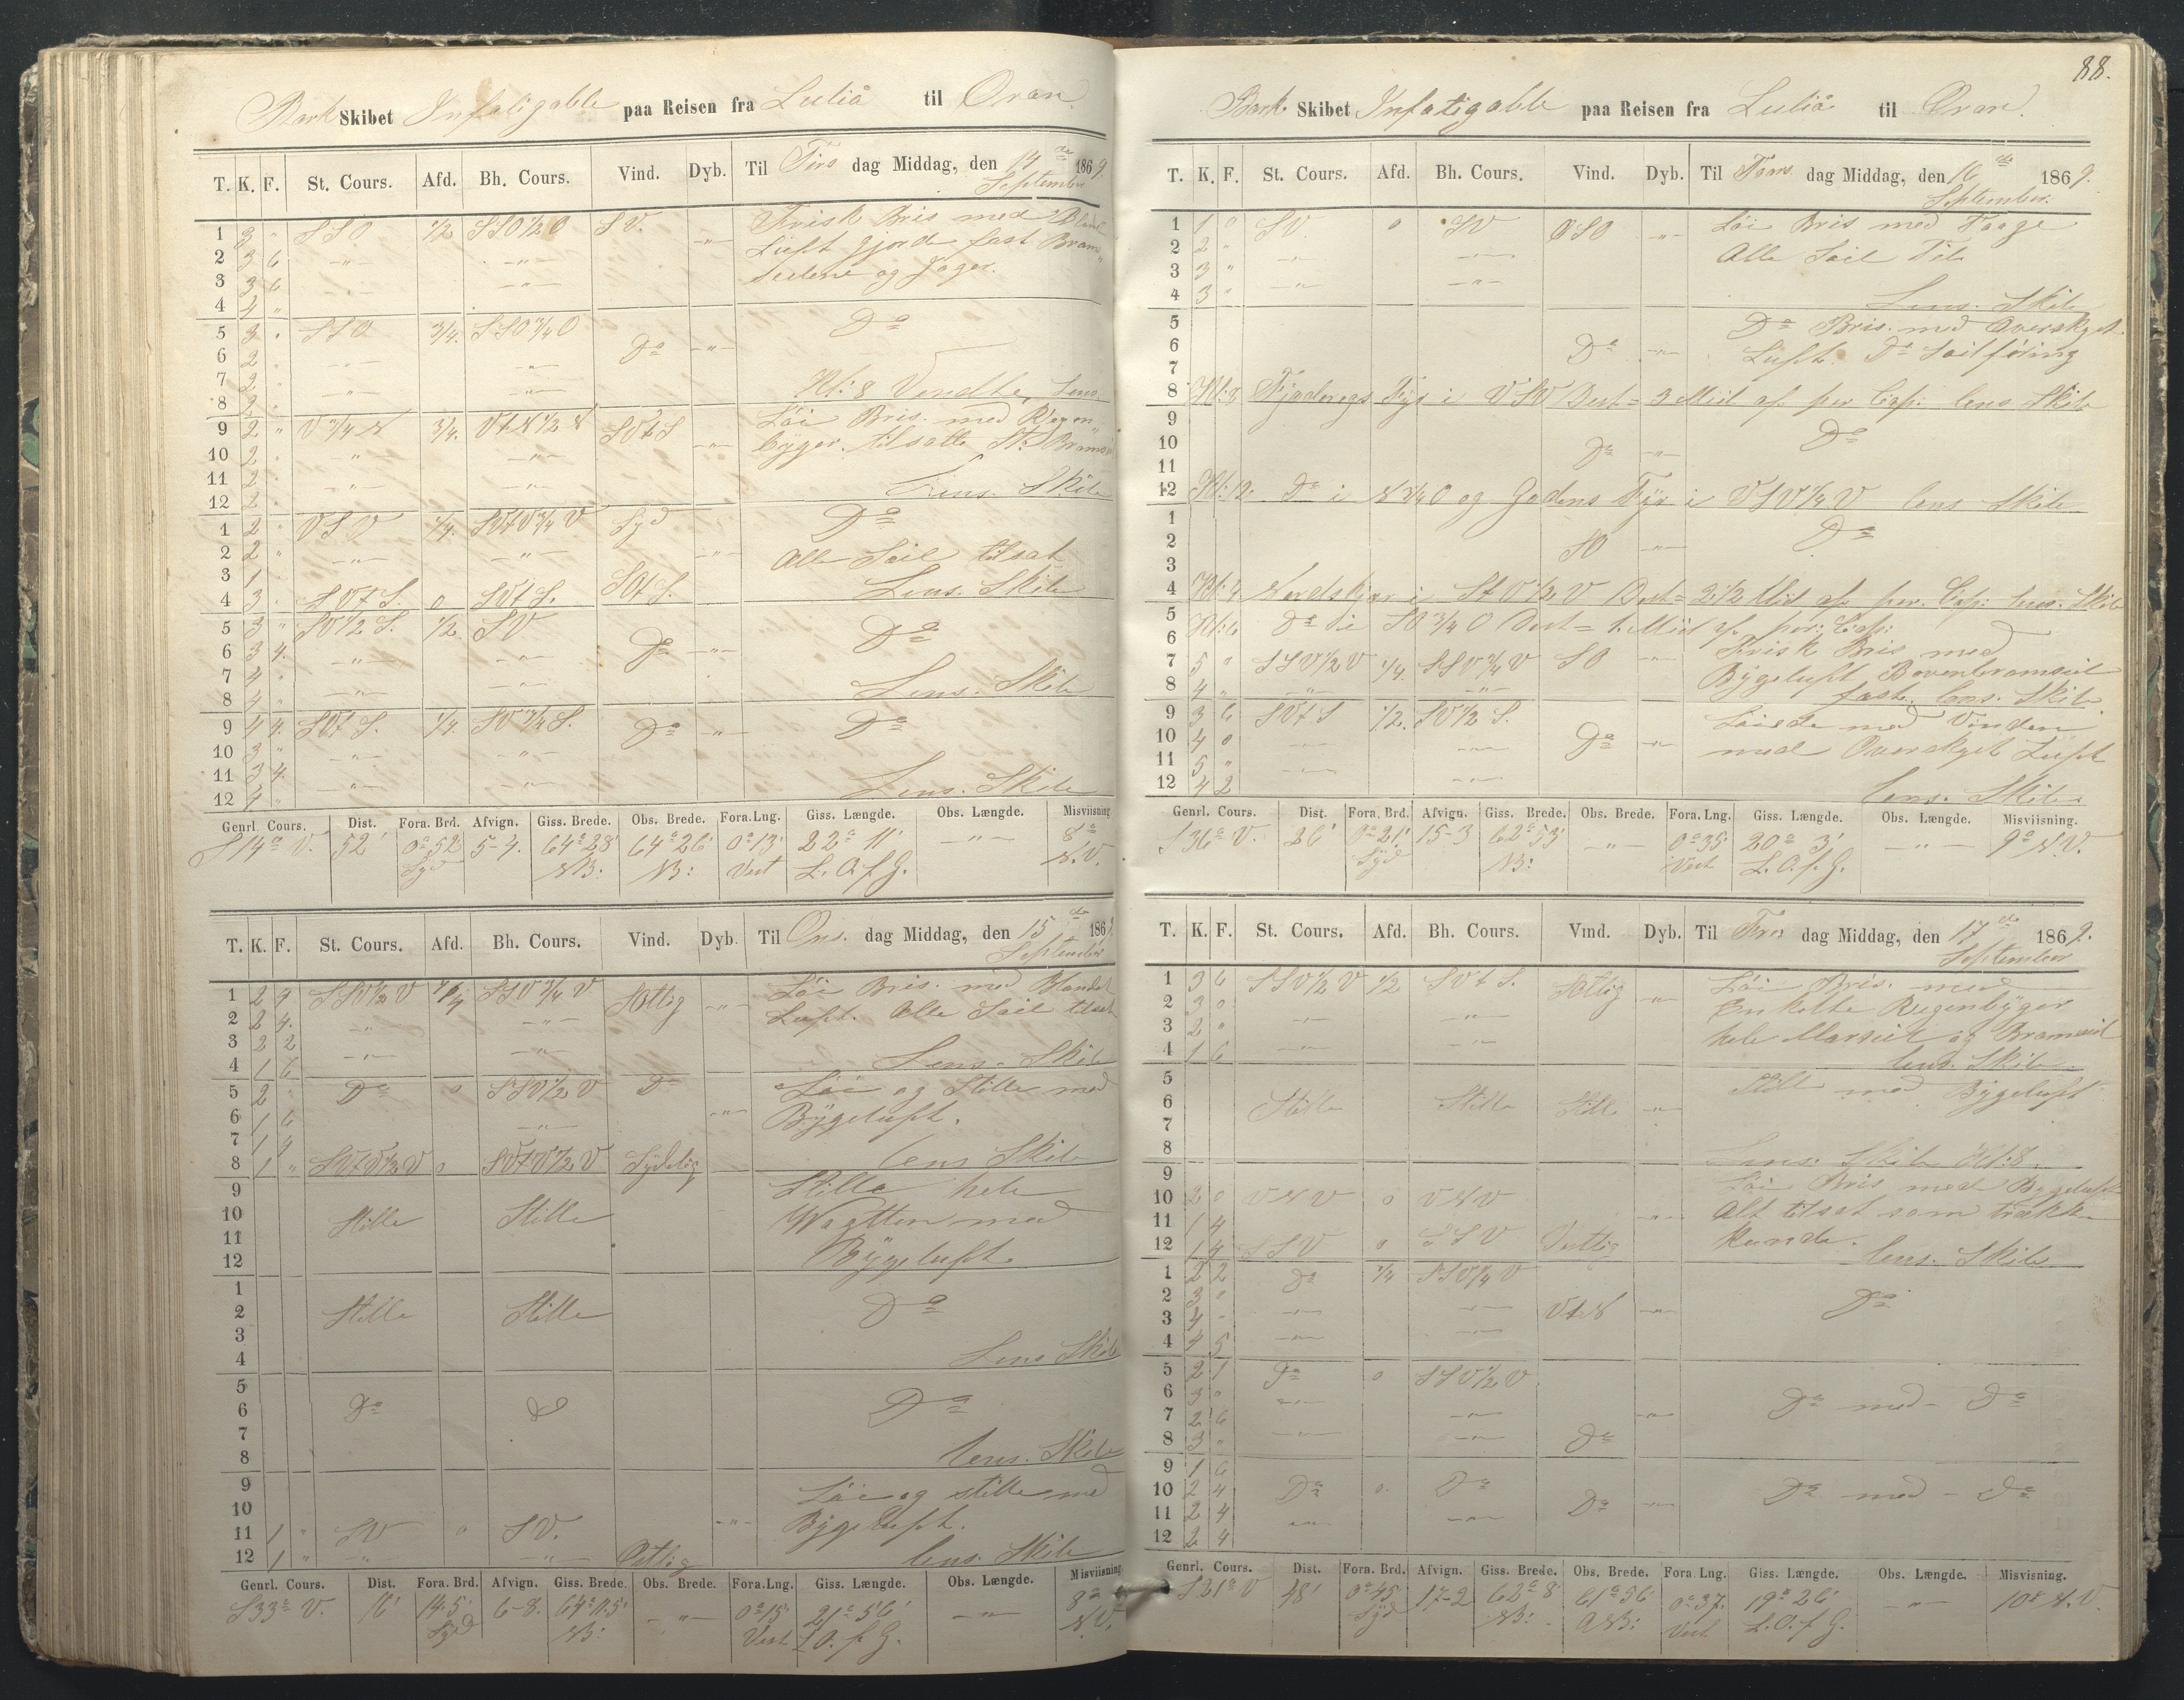 Bark Skibet Infatigable paa Reisen fra Luliå til Oran.
T. K. F. St. Cours. Afd. Bh. Cours. Vind. Dyb. Til Tirs dag Middag, den 14de September 1869.
1 3 " SSO 1/2 SSO1/2O SV. Frisk Bris med Blandt
2 3 6 —"— —"— —"— Luft gjorde fast Bram
3 3 6 —"— —"— Seilene og Jager.
4 4 "
5 3 " SSO 3/4. SSO3/4O Do
6 2 " —"— —"— Do —"—
7 2 " —"— —"— Kl: 8 Vendte, Lens.
8 2 "
9 2 " V3/4N 3/4. VtN1/2N SVtS Løi Bris. med Regen
10 2 " —"— —"— —"— byger. tilsatte St: Bramseil
11 2 " —"— —"— Lens. Skib
12 2 "
1 2 " VSV 1/4. SVtV3/4V Syd Do
2 2 " —"— —"— —"— Alle Seil tilsat
3 1 " Lens. Skib
4 3 " SVtS. 0 SVtS. SOtS.
5 3 " SV1/2S. 1/2 SV Do
6 3 4. —"— —"— Do —"—
7 4 " —"— —"— Lens. Skib
8 4 "
9 4 4. SVtS. 1/4. SV3/4S. Do —"— Do
10 3 " —"— —"—
11 3 4. —"— —"— Lens. Skib
12 4 "
Genrl. Cours. Dist. Fora. Brd. Afvign. Giss. Brede. Obs. Brede. Fora.Lng. Giss. Længde. Obs. Længde. Misviisning
S14°V. 52' 0°52 5-4. 64°28' 64°26' 0°13' 22°11' —"— 8°
Syd NB: NB: Vest L. O. f. G. N.V.
T. K. F. St. Cours. Afd. Bh. Cours. Vind. Dyb. Til Ons. dag Middag, den 15de September 1869
1 2 4 SSV1/2V 1/4 SSV3/4V SOtlig Løi Bris. med Blandet
2 2 4. —"— —"— —"— Luft. Alle Seil tilsat
3 2 2 —"— —"—
4 1 6 Lens. Skib
5 2 " Do 0 SSV1/2V Do Løi og Stille med
6 1 6 —"— —"— Bygeluft.
7 1 4
8 1 " SVtV1/2V 0 SVtV1/2V Sydelig lens Skib
9 Stille hele
10 Stille Stille Wagtten med
11 Bygeluft.
12
1
2 Stille Stille Do
3
4 Lens Skib
5
6 Do Do Do
7
8 lens. Skib
9 Løi og stille med
10 —"— Bygeluft.
11 1 " SV 0 SV.
12 1 " —"— —"— Østlig lens. Skib
Genrl. Cours. Dist. Fora. Brd. Afvign. Giss. Brede. Obs. Brede. Fora.Lng. Giss. Længde. Obs. Længde. Misviisning
S33°V. 16' 14.5' 6-8. 64°11.5' —"— 0°15' 21°56' —"— 8°
Syd NB: Vest L O. f. G. N.V.
88.
Bark Skibet Infatigable paa Reisen fra Luliå til Oran.
T. K. F. St. Cours. Afd. Bh. Cours. Vind. Dyb. Til Tors dag Middag, den 16de September. 1869.
1 1 0 SV. 0 SV OSO —"— Løi Bris med Taage
2 2 " —"— —"— Alle Seil Til
3 3 " —"— —"—
4 3 " Lens. Skib
5 Do Bris. med Overskyet
6 Do —"— Luft. Do Seilføring
7
8 Kl:8 Fyr i VSV Dist= 3 Miil af. per Cap: lens Skib
9
10 Do —"— Do
11
12 Kl:12. Do i N3/4O og Gadens Fyr i VSV1/4V lens Skib
1
2 SO —"— Do
3
4 Kl:4 i StV1/2V Dist= 2 1/2 Miil af. per. Cap: lens. Skib
5
6 Kl:6 Do i SO3/4O Dist= 1. Miil af. per: Cap:
7 5 " SSV1/2V 1/4. SSV3/4V SO —"— Frisk Bris med
8 4 " —"— —"— Bygeluft Bovenbramseil
faste. lens. Skib.
9 3 6 SVtS 1/2. SV1/2S. Løiede med Vinden
10 4 0 —"— —"— Do —"— med Overskyet Luft
11 5 "
12 4 2 —"— —"— lens. Skib.
Genrl. Cours. Dist. Fora. Brd. Afvign. Giss. Brede. Obs. Brede. Fora.Lng. Giss. Længde. Obs. Længde. Misviisning.
S36°V. 26' 0°21' 15-3 62°53' —"— 0°35' 20°3' —"— 9° N.V.
Syd NB: Vest L. O. f. G.
T. K. F. St. Cours. Afd. Bh. Cours. Vind. Dyb. Til Fre dag Middag, den 17de September 1869.
1 3 6 SSV1/2V 1/2 SVtS. SOtlig Løi Bris. med
2 3 0 —"— —"— —"— Enkelte Regenbyger
3 2 " —"— —"— hele Marseil og Bramseil
4 1 6 lens. Skib
5 Stille med Bygeluft
6 Stille Stille Stille —"—
7
8 Lens. Skib Kl:8.
9 Løi Bris med Bygeluft
10 2 0 VNV 0 VNV —"— Alt tilsat som trække
11 1 4 kunde.
12 1 4 SSV 0 SSV Vestlig lens. Skib
1 2 2 Do 1/4 SSV1/4V
2 3 " —"— —"— VtN —"— Do
3 4 -
4 4 5 —"— —"—
5 2 1 Do 0 SSV1/2V
6 3 0 —"— Do med - Do
7 2 6 —"— —"—
8 3 " —"— —"— Do
9 1 6
10 2 4 Do 0. Do Do —"— Do med - Do
11 2 4 —"— —"—
12 2 4
Genrl. Cours. Dist. Fora. Brd. Afvign. Giss. Brede. Obs. Brede. Fora Lng. Giss. Længde. Obs. Længde. Misvisning.
S21°V 48' 0°45' 17-2 62°8' 61°56' 0°37. 19°26' —"— 10° N.V.
Syd NB: NB: Vest L. O. f. G.